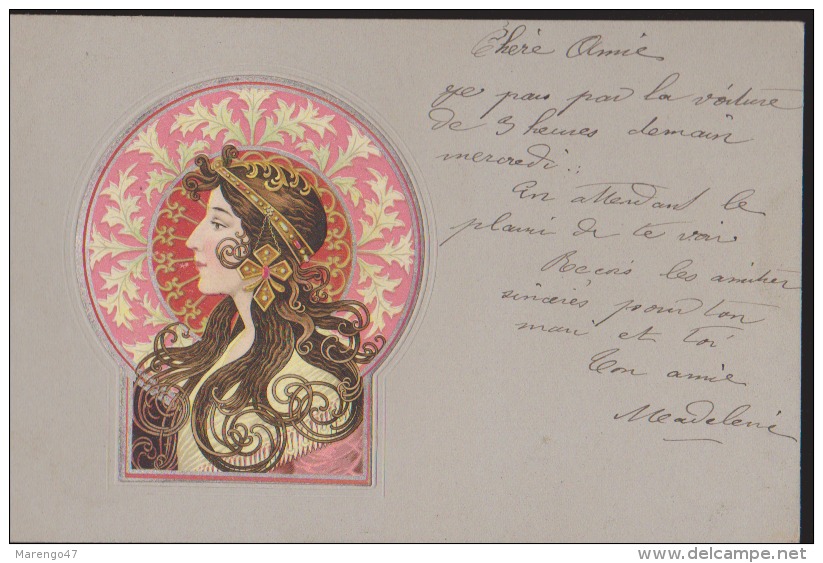 Chère Amie
Je pars par la voiture
de 3 heures demain
mercredi.
En attendant le
plaisir de te voir
Recois les amitiés
sincères pour ton
mari et toi
Ton amie
Madeleine
Marengo47
http://www.delcampe.net